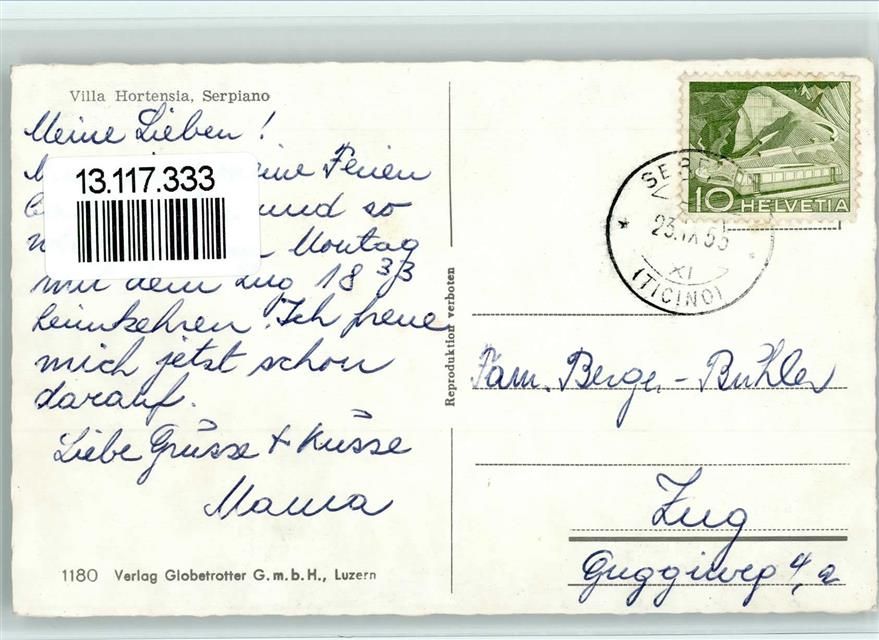 Villa Hortensia, Serpiano
Meine Lieben!
eine Ferien
13.117.333
und so
Montag
mit dem Zug 18 33
heimkehren. Ich freue
mich jetzt schon
darauf.
Liebe Grüsse + Küsse
Mama
1180 Verlag Globetrotter G.m.b.H., Luzern
Reproduktion verboten
10 HELVETIA
23.IX.55
XI
(TICINO)
Fam. Berger-Bühler
Zug
Guggiweg 4, a